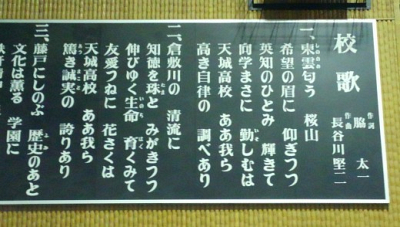 校歌
作詞 脇 太一
作曲 長谷川堅二
一、東雲匂う 桜山
希望の眉に 仰ぎつつ
英知のひとみ 輝きて
向学まさに 勤しむは
天城高校 ああ我ら
高き自律の 調べあり
二、倉敷川の 清流に
知徳を珠と みがきつつ
伸びゆく生命 育くみて
友愛つねに 花さくは
天城高校 ああ我ら
篤き誠実の 誇りあり
三、藤戸にしのぶ 歴史のあと
文化は薫る 学園に